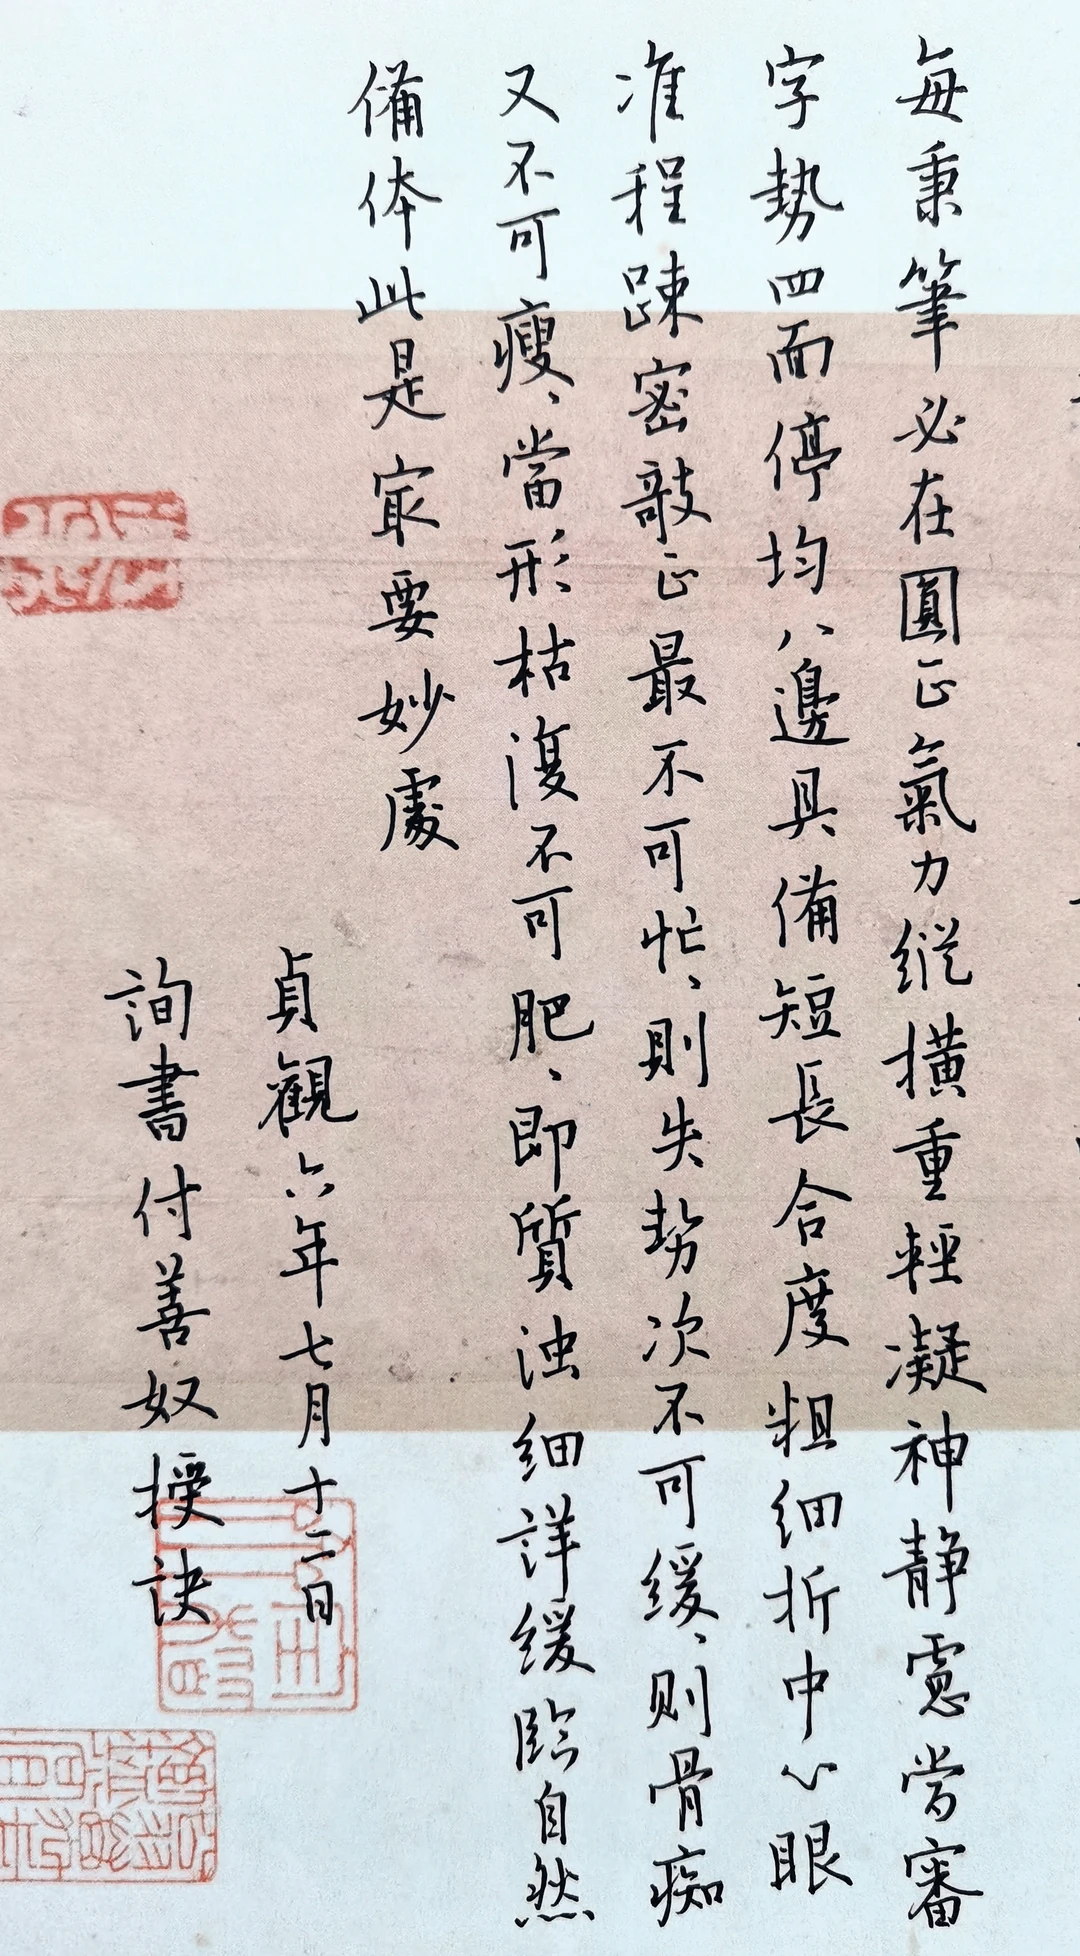 每秉筆必在圓正氣力縱橫重輕凝神静慮當審
字勢四面停均八邊具備短長合度粗細折中心眼
准程踈密敧正最不可忙、則失勢次不可緩、則骨痴
又不可瘦、當形枯復不可肥、即質浊細詳緩臨自然
備体此是冣要妙處
貞觀六年七月十二日
詢書付善奴授訣